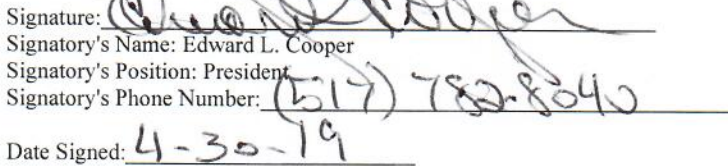 Signature: Edward L Cooper
Signatory's Name: Edward L. Cooper
Signatory's Position: President
Signatory's Phone Number: (517) 782-8040
Date Signed: 4-30-19